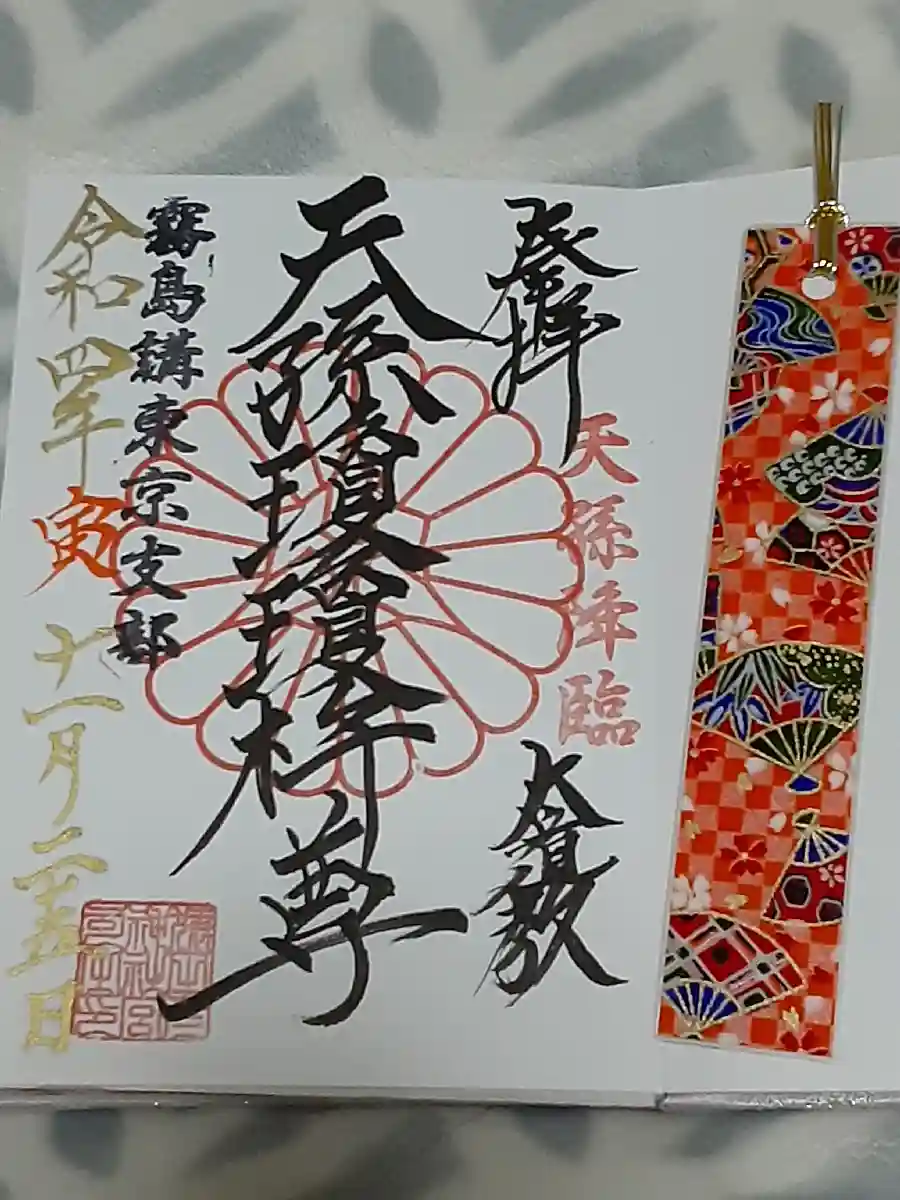 登拝
天孫降臨
天孫瓊瓊杵尊
霧島講東京支部
令和四年 寅 十一月二十五日